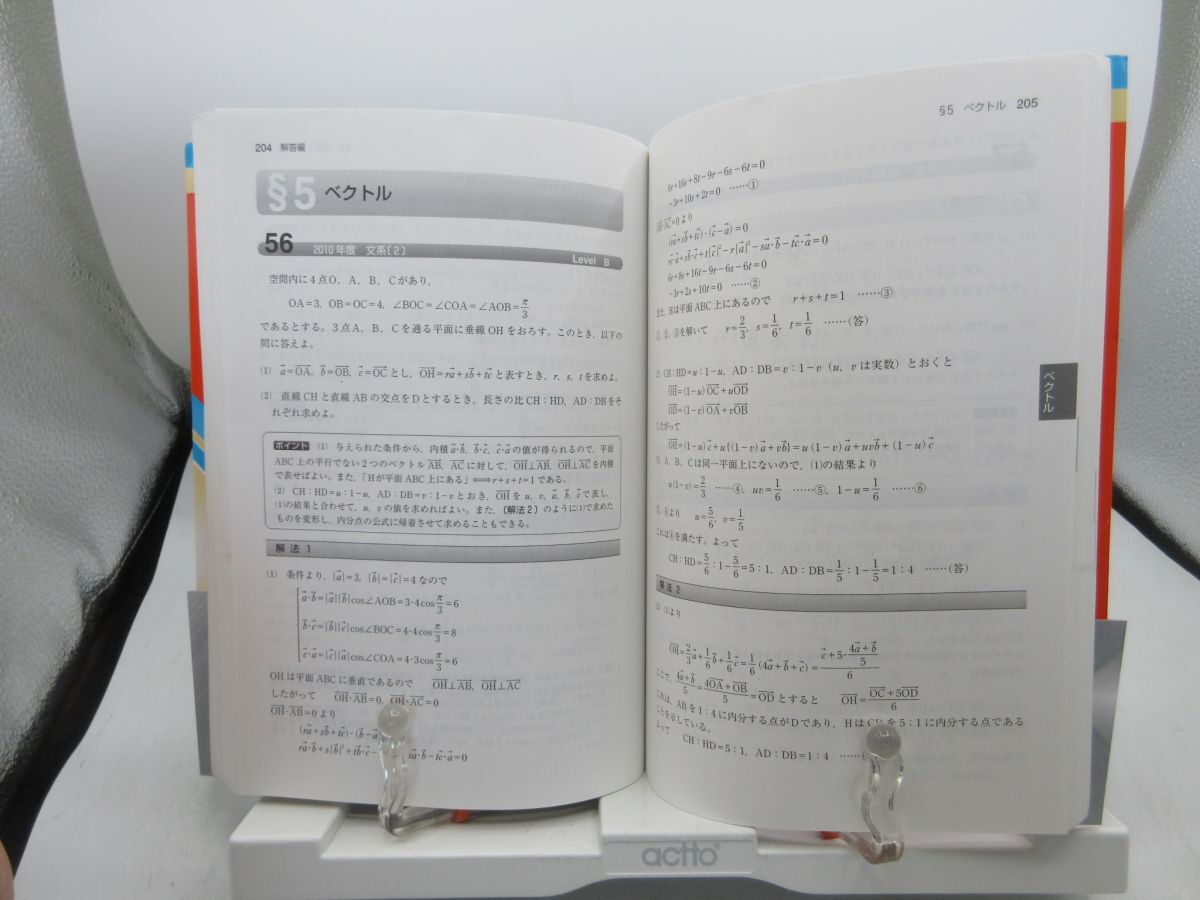 204 解答編
§5 ベクトル
56 2010年度 文系〔2〕 Level B
空間内に4点O，A，B，Cがあり，
OA=3，OB=OC=4，∠BOC=∠COA=∠AOB=π/3
であるとする。3点A，B，Cを通る平面に垂線OHをおろす。このとき，以下の
問に答えよ。
(1) a→=OA→，b→=OB→，c→=OC→とし，OH→=ra→+sb→+tc→と表すとき，r，s，tを求めよ。
(2) 直線CHと直線ABの交点をDとするとき，長さの比CH：HD，AD：DBをそ
れぞれ求めよ。
ポイント (1) 与えられた条件から，内積a→·b→，b→·c→，c→·a→の値が得られるので，平面
ABC上の平行でない2つのベクトルAB→，AC→に対して，OH→⊥AB→，OH→⊥AC→を内積
で表せばよい。また，「Hが平面ABC上にある」⟺r+s+t=1である。
(2) CH：HD=u：1-u，AD：DB=v：1-vとおき，OH→をu，v，a→，b→，c→で表し，
(1)の結果と合わせて，u，vの値を求めればよい。また，〔解法2〕のように(1)で求めた
ものを変形し，内分点の公式に帰着させて求めることもできる。
解法 1
(1) 条件より，|a→|=3，|b→|=|c→|=4なので
a→·b→=|a→||b→|cos∠AOB=3·4cosπ/3=6
b→·c→=|b→||c→|cos∠BOC=4·4cosπ/3=8
c→·a→=|c→||a→|cos∠COA=4·3cosπ/3=6
OHは平面ABCに垂直であるので OH→⊥AB→，OH→⊥AC→
したがって OH→·AB→=0，OH→·AC→=0
OH→·AB→=0より
(ra→+sb→+tc→)·(b→-a→
ra→·b→+s|b→|²+tb→·c→- sa→·b→-tc→·a→=0
§5 ベクトル 205
6r+16s+8t-9r-6s-6t=0
-3r+10s+2t=0 ……①
OH→·AC→=0より
(ra→+sb→+tc→)·(c→-a→)=0
rc→·a→+sb→·c→+t|c→|²-r|a→|²-sa→·b→-tc→·a→=0
6r+8s+16t-9r-6s-6t=0
-3r+2s+10t=0 ……②
また，Hは平面ABC上にあるので r+s+t=1 ……③
②，③を解いて r=2/3，s=1/6，t=1/6 ……(答)
CH：HD=u：1-u，AD：DB=v：1-v（u，vは実数）とおくと
OH→=(1-u)OC→+uOD→
OD→=(1-v)OA→+vOB→
したがって
OH→=(1-u)c→+u{(1-v)a→+vb→}=u(1-v)a→+uvb→+(1-u)c→
A，B，Cは同一平面上にないので，(1)の結果より
u(1-v)=2/3 ……④，uv=1/6 ……⑤，1-u=1/6 ……⑥
より u=5/6，v=1/5
これは④を満たす。よって
CH：HD=5/6：1-5/6=5：1，AD：DB=1/5：1-1/5=1：4 ……(答)
解法 2
(1)より
OH→=2/3a→+1/6b→+1/6c→=1/6(4a→+b→+c→)=(c→+5·(4a→+b→)/5)/6
ここで，(4a→+b→)/5=(4OA→+OB→)/5=OD→とすると OH→=(OC→+5OD→)/6
これは，ABを1：4に内分する点がDであり，HはCDを5：1に内分する点である
ことを示している。
よって CH：HD=5：1，AD：DB=1：4 ……
ベクトル
actto